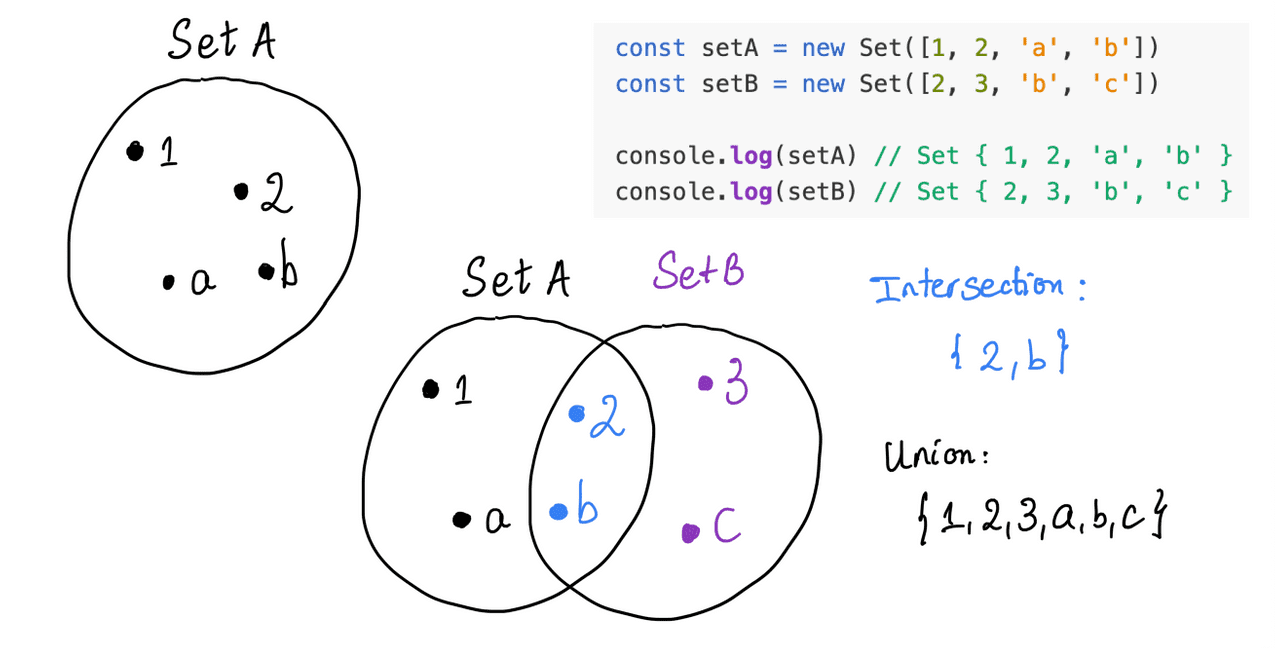 Set A
1
2
a
b
const setA = new Set([1, 2, 'a', 'b'])
const setB = new Set([2, 3, 'b', 'c'])
console.log(setA) // Set { 1, 2, 'a', 'b' }
console.log(setB) // Set { 2, 3, 'b', 'c' }
Set A
Set B
1
a
2
b
3
C
Intersection:
{ 2, b }
Union:
{ 1, 2, 3, a, b, c }